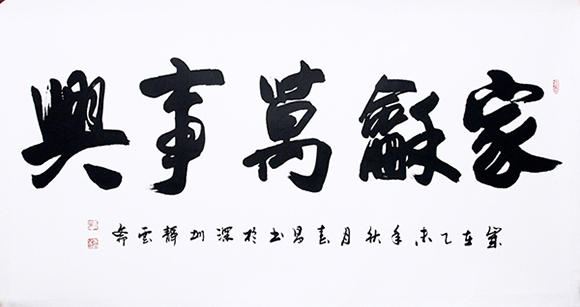 家龢萬事興
歲在乙未年秋月昌书於深圳靜雲斋